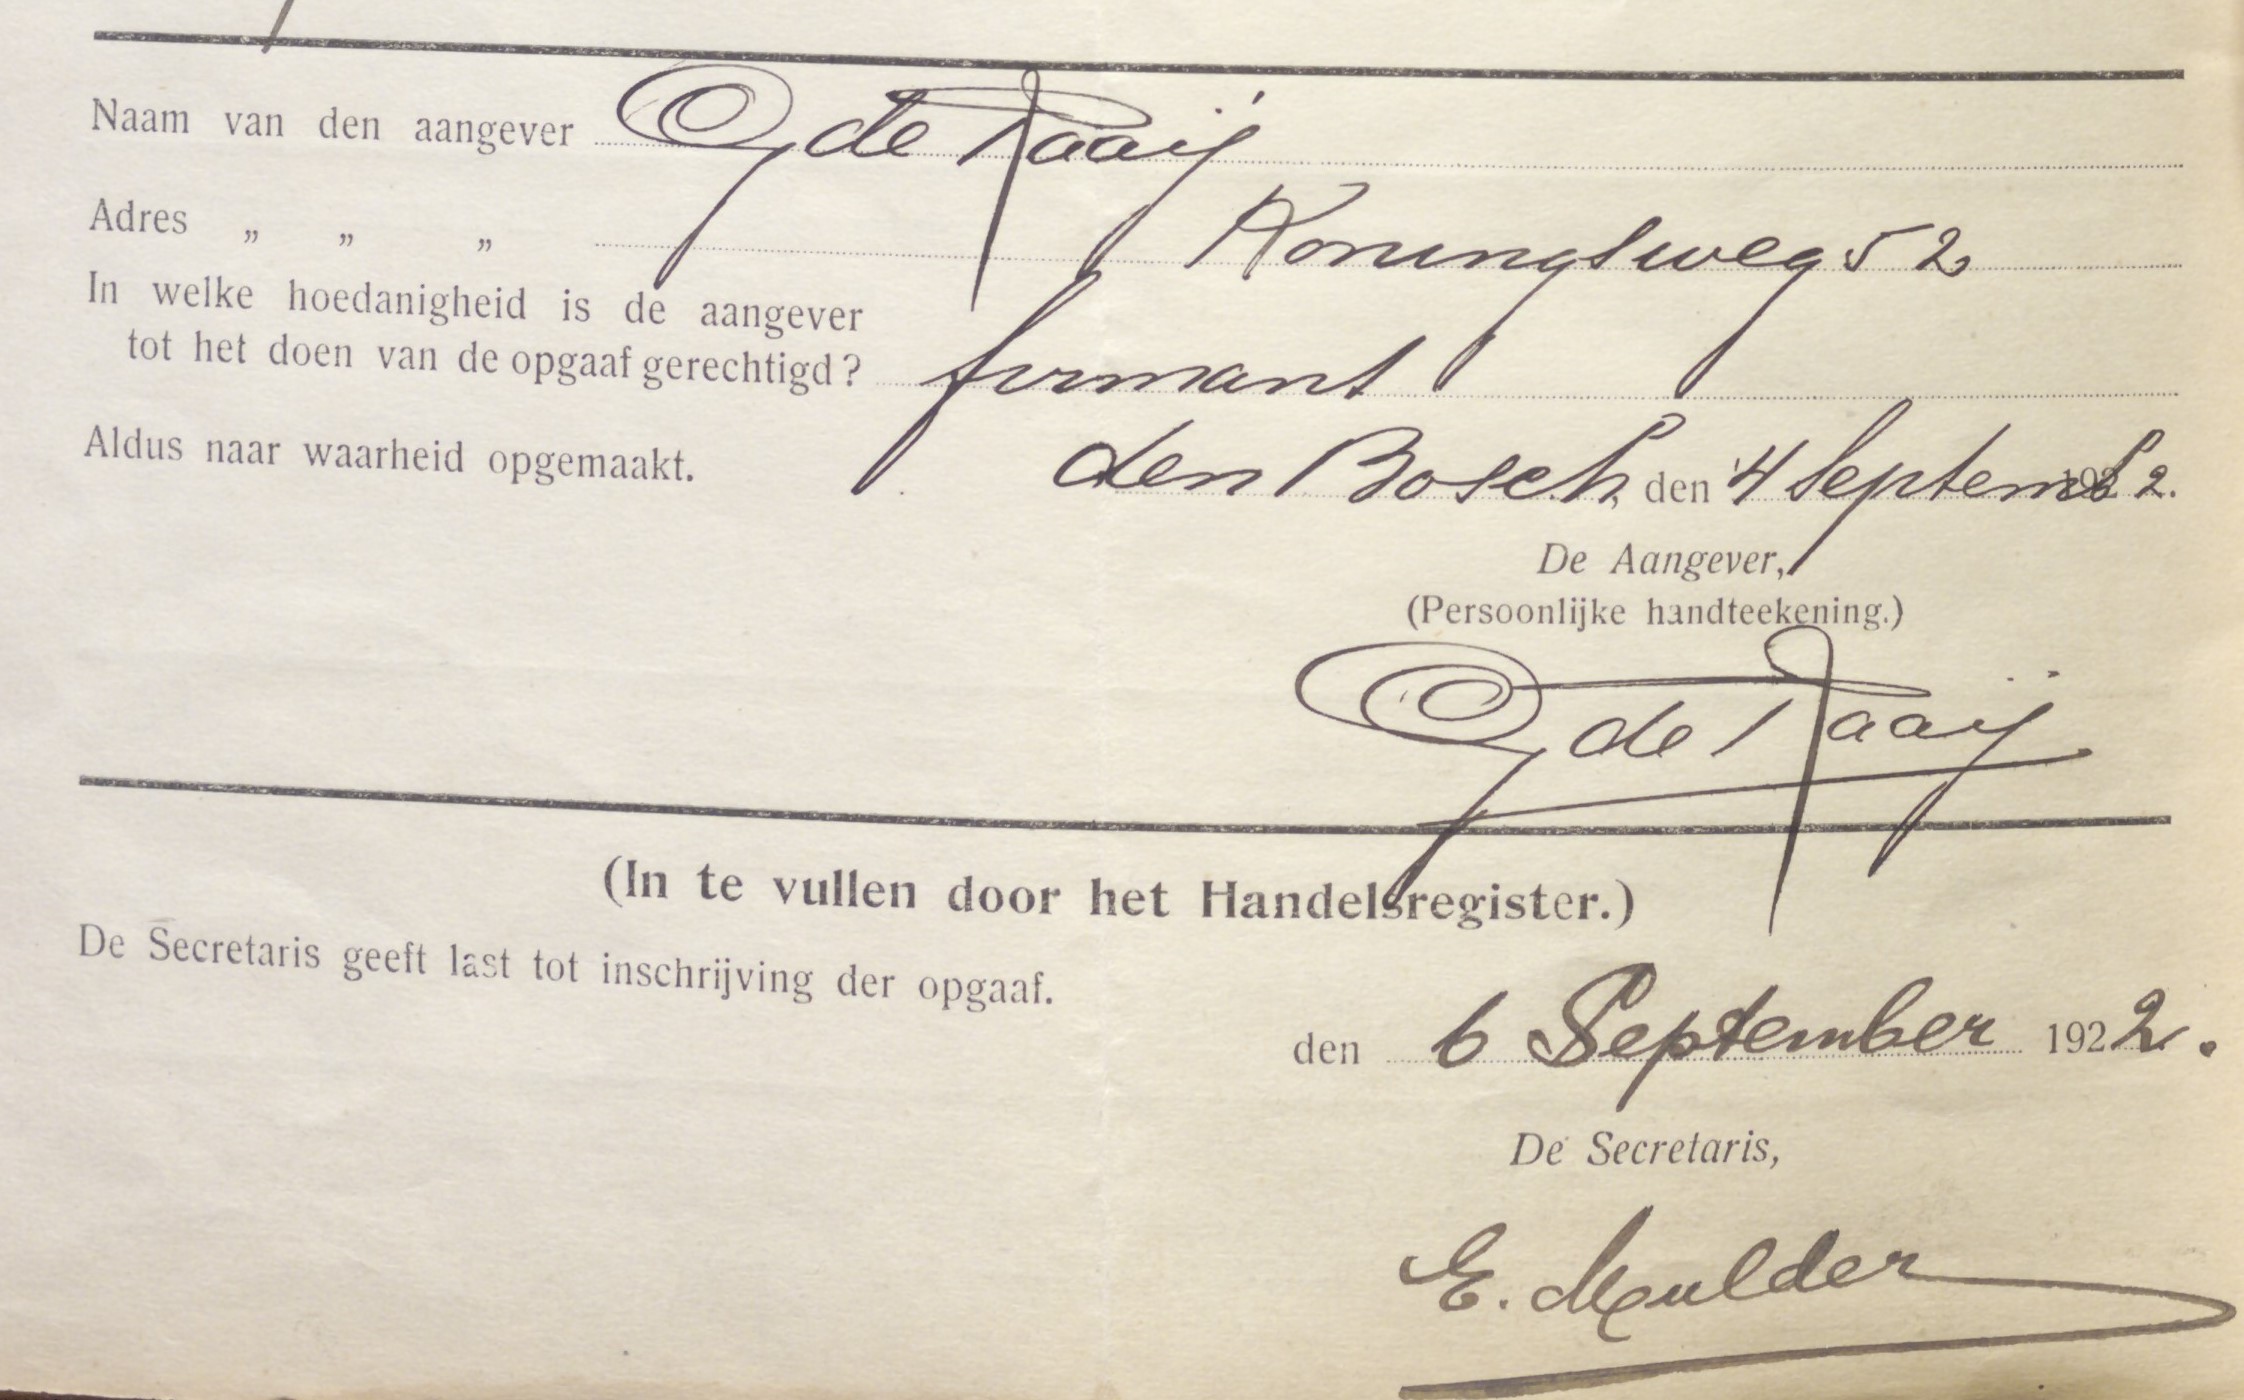 Naam van den aangever G de Raaij
Adres „ „ „ Koningsweg 52
In welke hoedanigheid is de aangever
tot het doen van de opgaaf gerechtigd? firmant
Aldus naar waarheid opgemaakt. den Bosch, den 4 Septemb 1922.
De Aangever,
(Persoonlijke handteekening.)
G de Raaij
(In te vullen door het Handelsregister.)
De Secretaris geeft last tot inschrijving der opgaaf.
den 6 September 1922.
De Secretaris,
E. Mulder